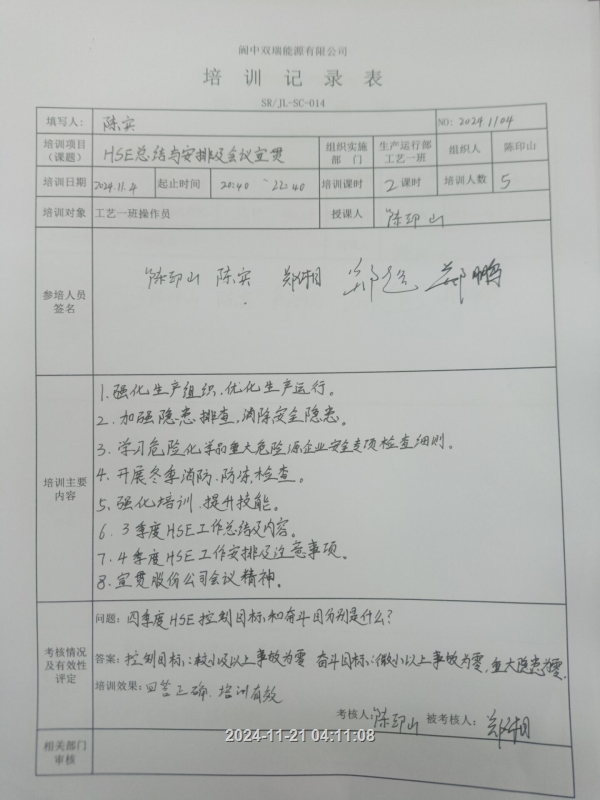 阆中双瑞能源有限公司
培训记录表
SR/JL-SC-014
填写人： 陈实 NO: 20241104
培训项目（课题） HSE总结与安排及会议宣贯 组织实施部门 生产运行部工艺一班 组织人 陈印山
培训日期 2024.11.4 起止时间 20:40 ~22:40 培训课时 2课时 培训人数 5
培训对象 工艺一班操作员 授课人 陈印山
参培人员签名 陈印山 陈实 郑 郑 郑鹏
培训主要内容
1.强化生产组织、优化生产运行。
2.加强隐患排查，消除安全隐患。
3.学习危险化学品重大危险源企业安全专项检查细则。
4.开展冬季消防、防冻检查。
5.强化培训、提升技能。
6.3季度HSE工作总结及内容。
7.4季度HSE工作安排及注意事项。
8.宣贯股份公司会议精神。
考核情况及有效性评定
问题：四季度HSE控制目标，和奋斗目分别是什么？
答案：控制目标：较小及以上事故为零 奋斗目标：微小以上事故为零，重大隐患为零.
培训效果：回答正确、培训有效
考核人：陈印山 被考核人： 郑
相关部门审核
2024-11-21 04:11:08